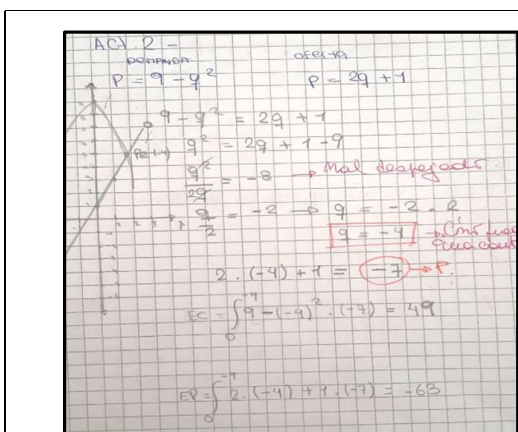 ACT. 2 -
DEMANDA OFERTA
P = 9 - q² P = 2q + 1
9 - q² = 2q + 1
q² = 2q + 1 - 9
q²/2q = -8 → Mal despejado
q/2 = -2 → q = -2 . 2
q = -4
2 . (-4) + 1 = -7 → P.
EC = ∫₀⁻⁴ 9 - (-4)² . (-7) = 49
EP = ∫₀⁻⁴ 2 . (-4) + 1 . (-7) = -63